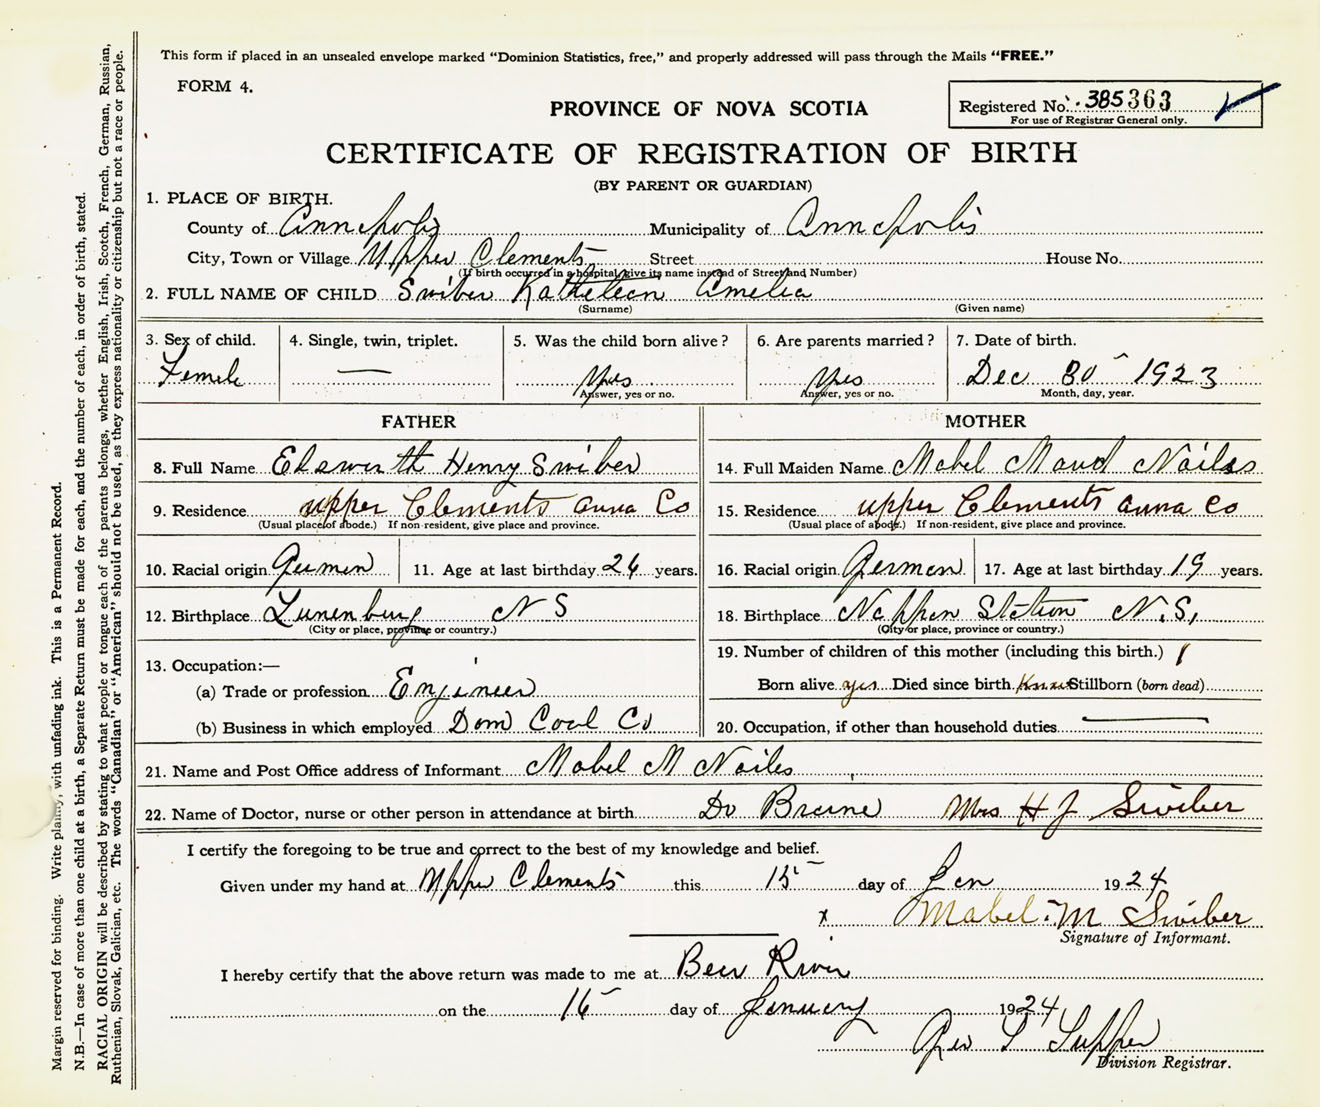 This form if placed in an unsealed envelope marked "Dominion Statistics, free," and properly addressed will pass through the Mails "FREE."
FORM 4.
PROVINCE OF NOVA SCOTIA
Registered No. 385363
For use of Registrar General only.
CERTIFICATE OF REGISTRATION OF BIRTH
(BY PARENT OR GUARDIAN)
1. PLACE OF BIRTH.
County of Annapolis Municipality of Annapolis
City, Town or Village Upper Clements Street House No.
(If birth occurred in a hospital give its name instead of Street and Number)
2. FULL NAME OF CHILD Swiber Kathleen Amelia
(Surname) (Given name)
3. Sex of child. 4. Single, twin, triplet. 5. Was the child born alive? 6. Are parents married? 7. Date of birth.
Female — Yes Yes Dec 30 1923
Answer, yes or no. Answer, yes or no. Month, day, year.
FATHER MOTHER
8. Full Name Henry Swiber 14. Full Maiden Name Mabel Maud Nailes
9. Residence upper Clements Anna Co 15. Residence upper Clements Anna Co
(Usual place of abode.) If non-resident, give place and province. (Usual place of abode.) If non-resident, give place and province.
10. Racial origin German 11. Age at last birthday years. 16. Racial origin German 17. Age at last birthday 19 years.
12. Birthplace Lunenburg N S 18. Birthplace Nappan Station N.S,
(City or place, province or country.) (City or place, province or country.)
13. Occupation:— 19. Number of children of this mother (including this birth.) 1
(a) Trade or profession Enjineer Born alive yes Died since birth Stillborn (born dead)
(b) Business in which employed Dom Coal Co 20. Occupation, if other than household duties —
21. Name and Post Office address of Informant Mabel M Nailes
22. Name of Doctor, nurse or other person in attendance at birth Mrs H J Swiber
I certify the foregoing to be true and correct to the best of my knowledge and belief.
Given under my hand at Upper Clements this 15 day of Jan 1924
x Mabel. M Swiber
Signature of Informant.
I hereby certify that the above return was made to me at Bear River
on the 16 day of January 1924
Geo Supper
Division Registrar.
Margin reserved for binding. Write plainly, with unfading ink. This is a Permanent Record.
N.B.—In case of more than one child at a birth, a Separate Return must be made for each, and the number of each, in order of birth, stated.
RACIAL ORIGIN will be described by stating to what people or tongue each of the parents belongs, whether English, Irish, Scotch, French, German, Russian,
Ruthenian, Slovak, Galician, etc. The words "Canadian" or "American" should not be used, as they express nationality or citizenship but not a race or people.